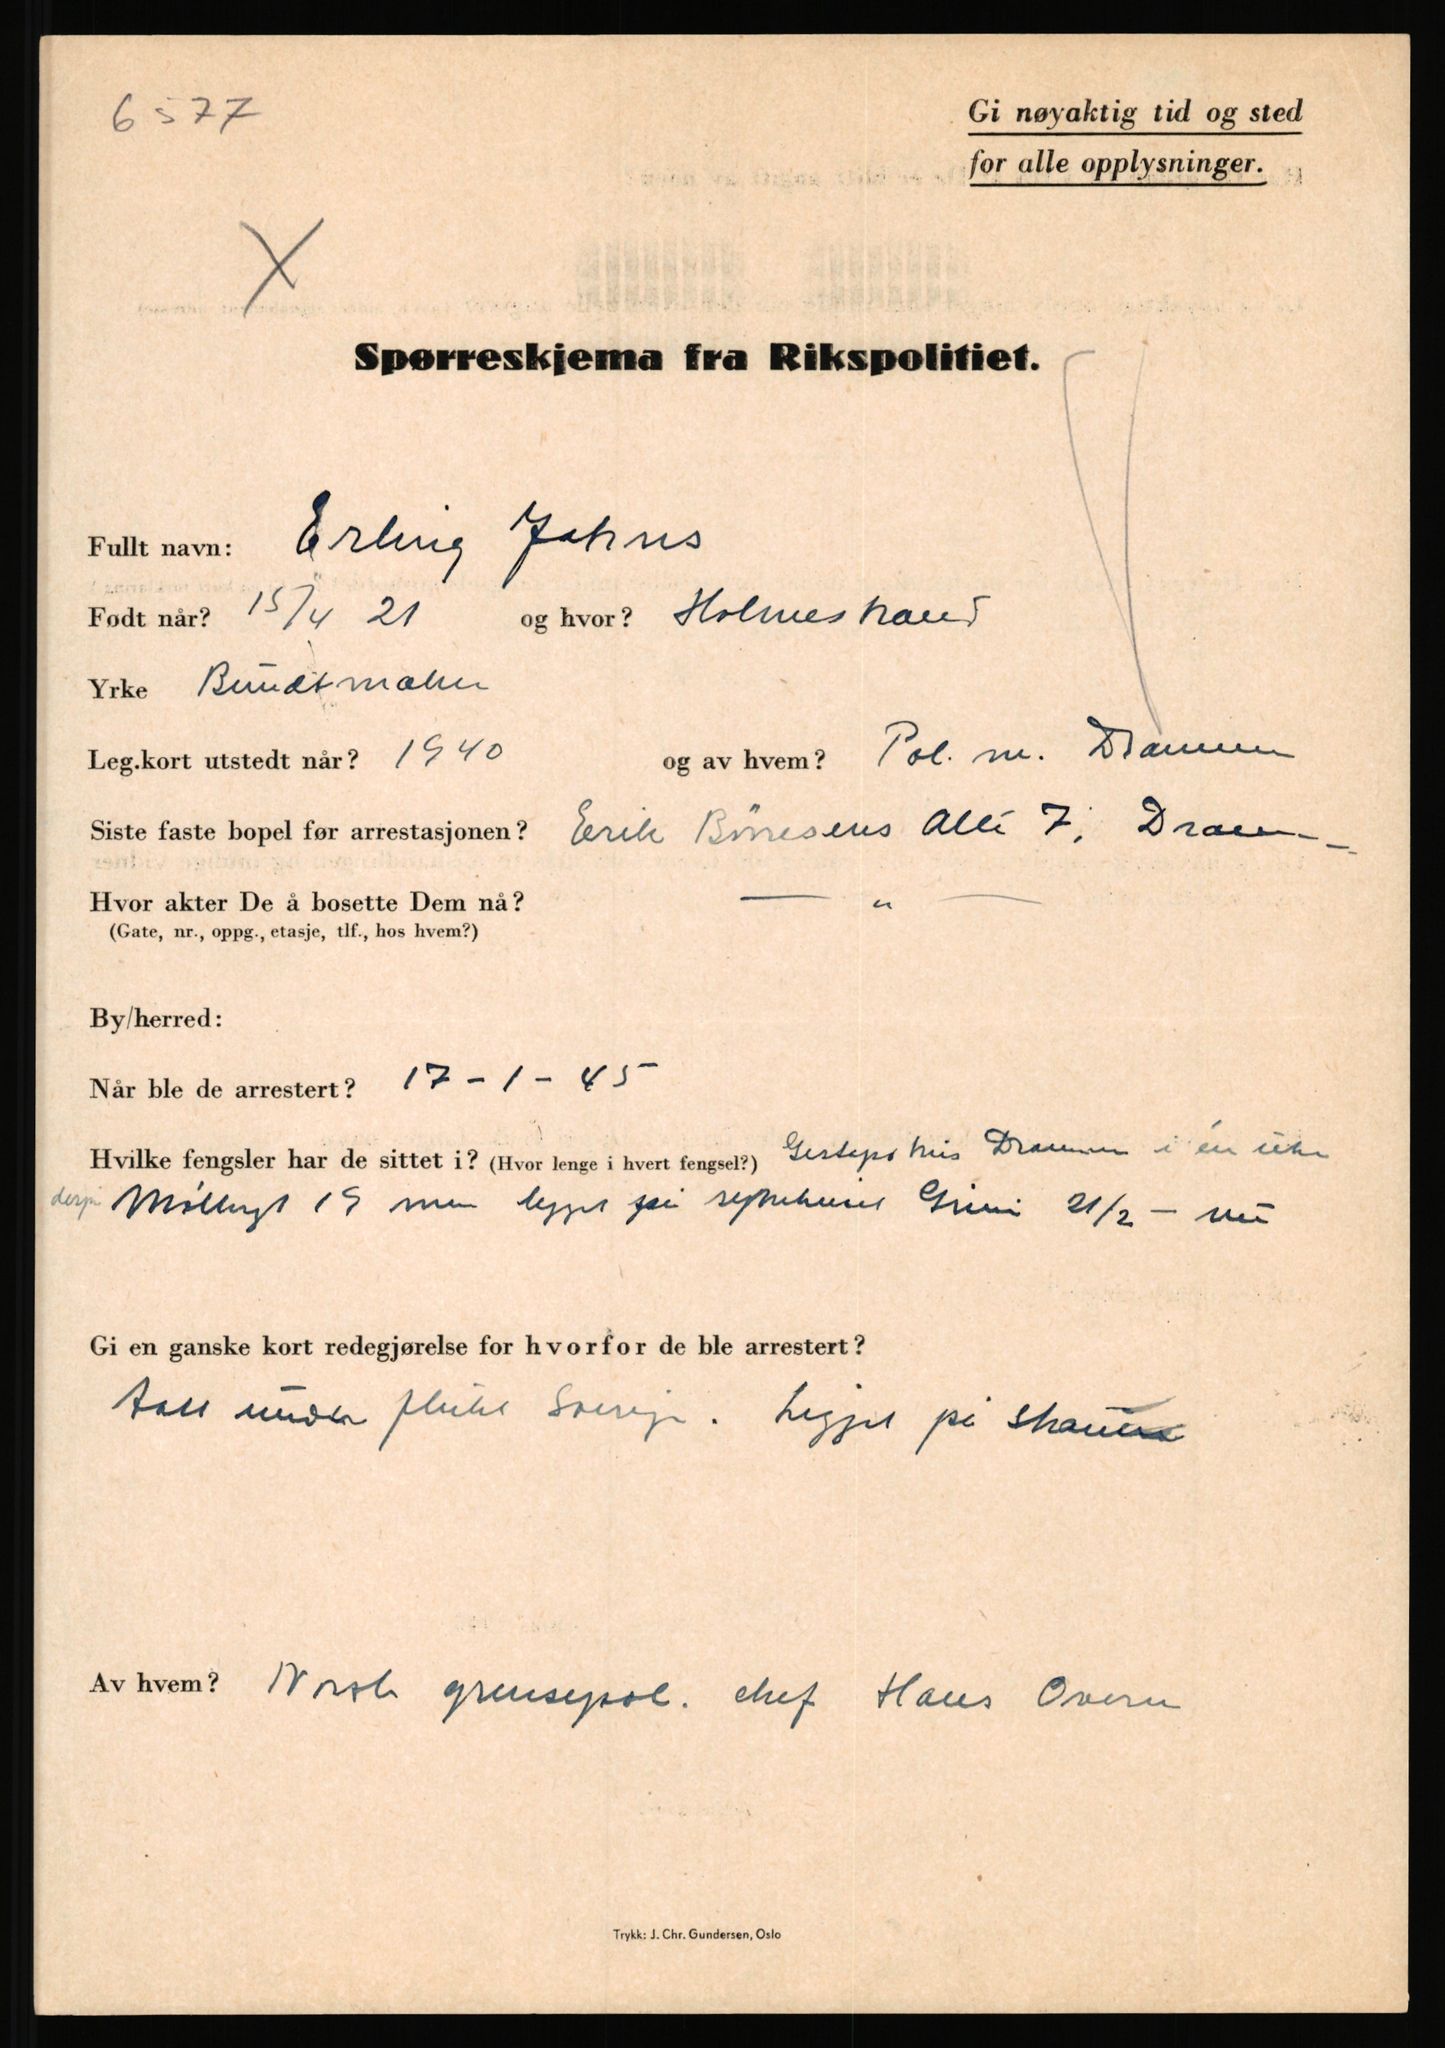 6577
Gi nøyaktig tid og sted
for alle opplysninger.
Spørreskjema fra Rikspolitiet.
Fullt navn: Erling Johns
Født når? 15/4 21 og hvor? Holmestrand
Yrke Bundtmaker
Leg.kort utstedt når? 1940 og av hvem? Pol. m. Drammen
Siste faste bopel før arrestasjonen? Erik Börresens Allé 7, Dramm
Hvor akter De å bosette Dem nå? — " —
(Gate, nr., oppg., etasje, tlf., hos hvem?)
By/herred:
Når ble de arrestert? 17-1-45
Hvilke fengsler har de sittet i? (Hvor lenge i hvert fengsel?) Gestapo hus Drammen i én uke
Møllergt 19 men Grini 21/2 - nu
Gi en ganske kort redegjørelse for hvorfor de ble arrestert?
tatt under flukt Sverige. Ligget på
Av hvem? Norsk grensepol. chef Hans Overn
Trykk: J. Chr. Gundersen, Oslo